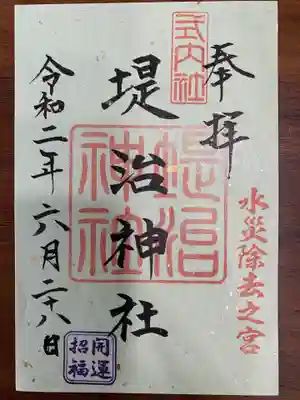 奉拝
水災除去之宮
式内社
堤治神社
堤治神社
令和二年六月二十八日
開運
招福